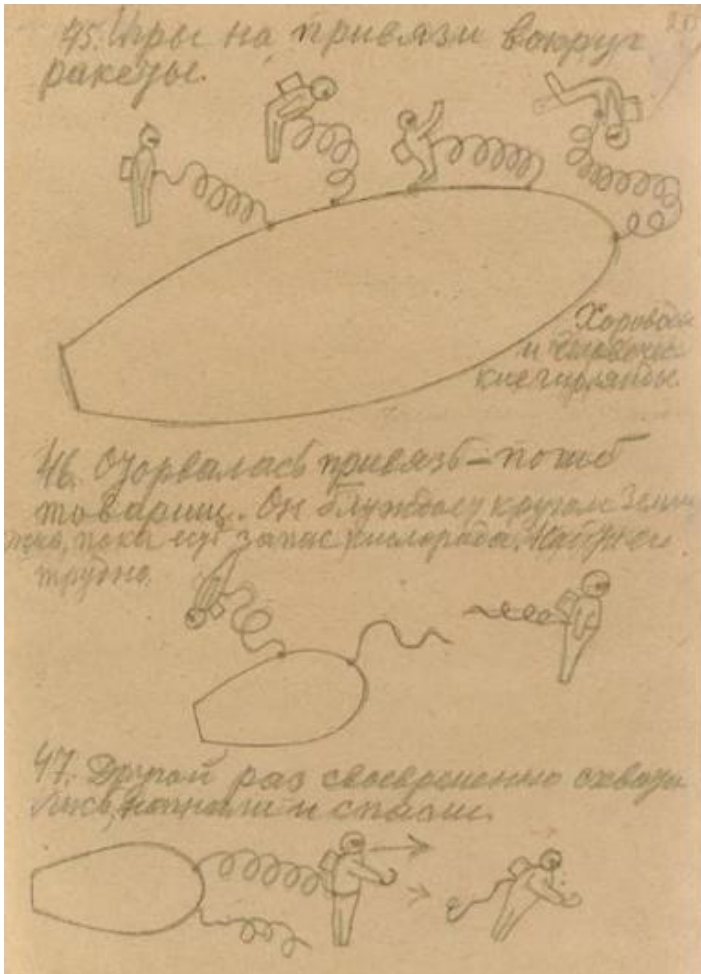 45. Игры на привязи вокруг
ракеты.
Хороводы
и человечес
кие гирлянды.
46. Оторвалась привязь – погиб
товарищ. Он блуждает кругом Земли
пока еще запас кислорода.
трудно.
47. Другой раз своевременно схвати
лись, нагнали и спасли.